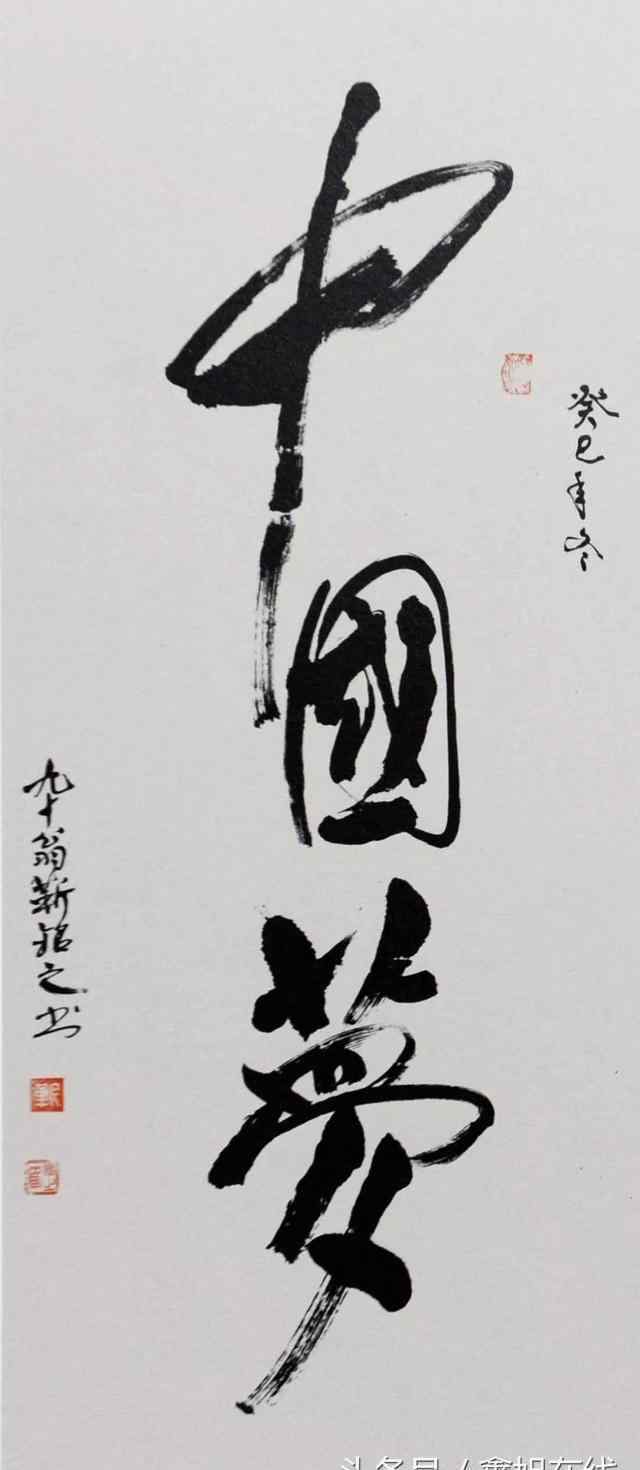 中國夢
癸巳年冬
九十翁靳銘之书
靳
头条号／鑫旭在线